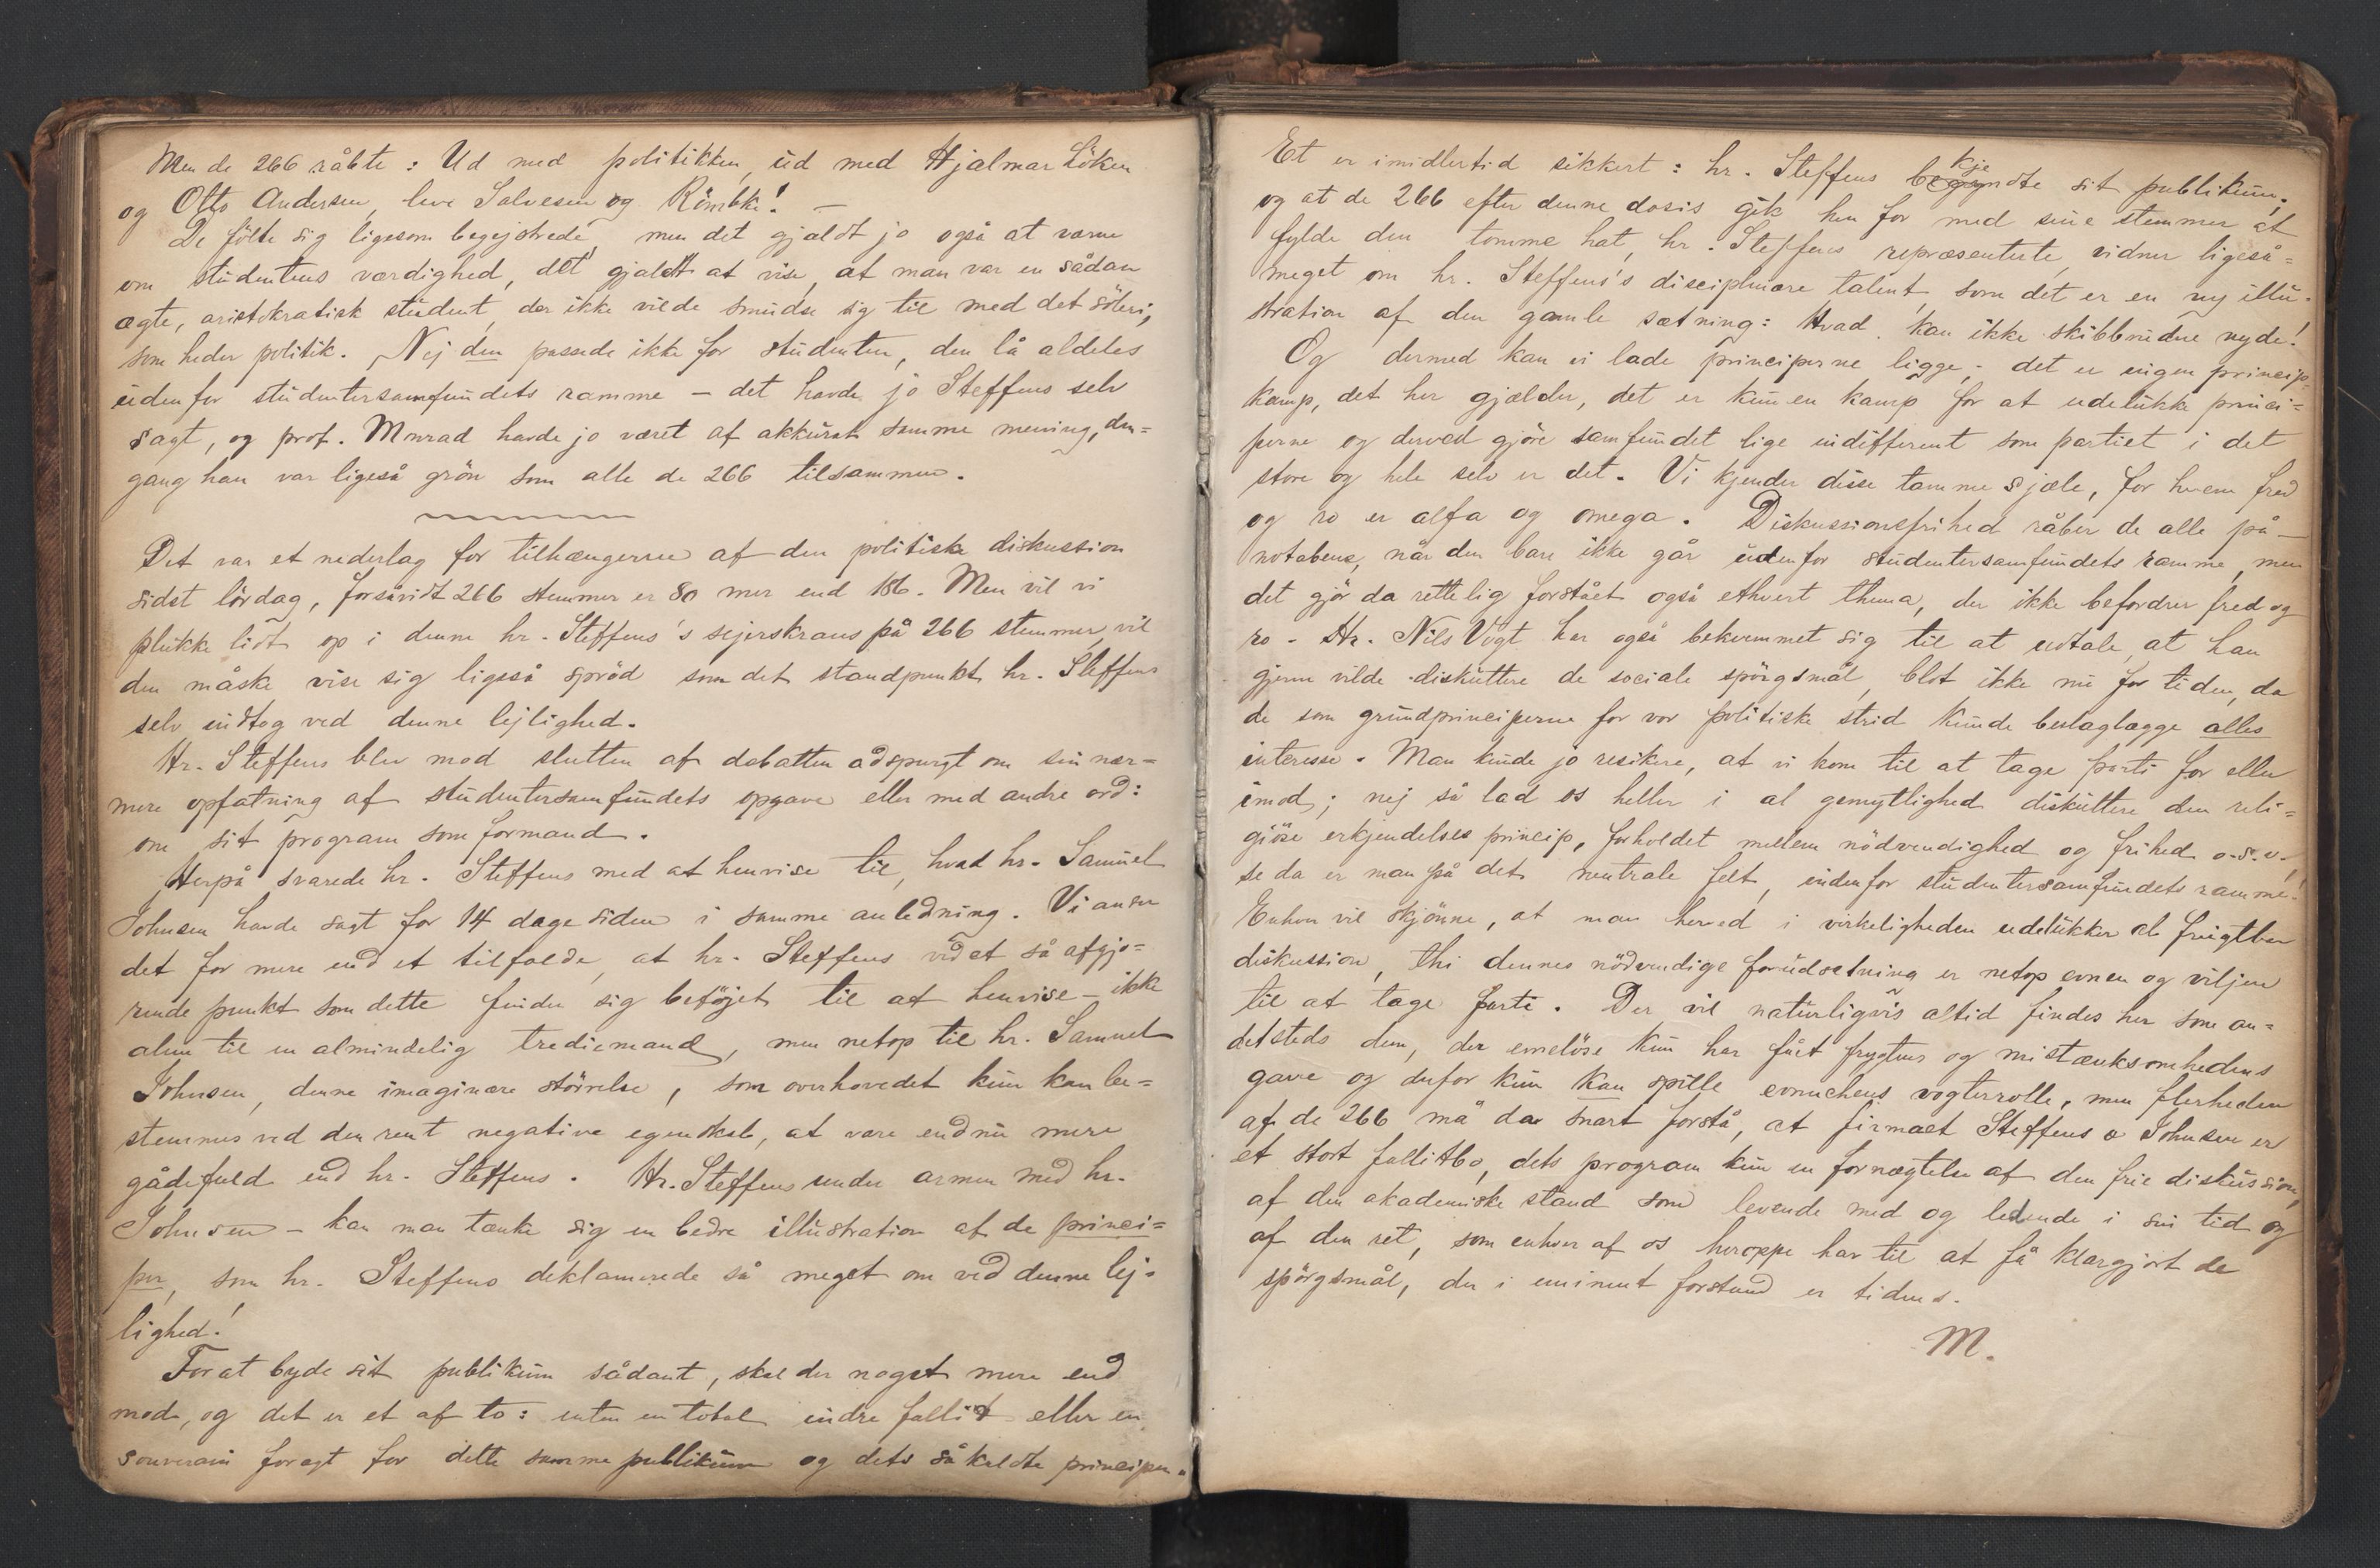 Men de 266 råbte: Ud med politikken, ud med Hjalmar Löken
og Otto Andersen, leve Salvesen og Römcke! —
De fölte sig ligesom begejstrede, men det gjaldt jo også at værne
om studentens værdighed, det gjaldt at vise, at man var en sådan
ægte, aristokratisk student, der ikke vilde smudse sig til med det söleri,
som heder politik. Nej den passede ikke for studenten, den lå aldeles
udenfor studentersamfundets ramme — det havde jo Steffens selv
sagt, og prof. Monrad havde jo været af akkurat samme mening, den=
gang han var ligeså grön som alle de 266 tilsammen.
Det var et nederlag for tilhængerne af den politiske diskussion
sidst lördag, forsåvidt 266 stemmer er 80 mer end 186. Men vil vi
plukke lidt op i denne hr. Steffens's sejerskrans på 266 stemmer, vil
den måske vise sig ligeså spröd som det standpunkt hr. Steffens
selv indtog ved denne lejlighed.
Hr. Steffens blev mod slutten af debatten adspurgt om sin nær=
mere opfatning af studentersamfundets opgave eller med andre ord:
om sit program som formand.
Herpå svarede hr. Steffens med at henvise til, hvad hr. Samuel
Johnsen havde sagt for 14 dage siden i samme anledning. Vi anser
det for mere end et tilfælde, at hr. Steffens ved et så afgjö=
rende punkt som dette finder sig beföjet til at henvise — ikke
alene til en almindelig trediemand, men netop til hr. Samuel
Johnsen, denne imaginære störrelse, som overhovedet kun kan be=
stemmes ved den rent negative egenskab, at være endnu mere
gådefuld end hr. Steffens. Hr. Steffens under armen med hr.
Johnsen — kan man tænke sig en bedre illustration af de princi=
per, som hr. Steffens deklamerede så meget om ved denne lej=
lighed!
For at byde sit publikum sådant, skal der noget mere end
mod, og det er et af to: enten en total indre fallit eller en
souveræn foragt for dette samme publikum og dets såkaldte principer.
Et er imidlertid sikkert: hr. Steffens begyndte kje sit publikum,
og at de 266 efter denne dosis gik hen for med sine stemmer at
fylde den tomme hat, hr. Steffens repræsenterte, vidner ligeså=
meget om hr. Steffens's disciplinære talent, som det er en ny illu=
stration af den gamle sætning: Hvad kan ikke skibbrudne nyde!
Og dermed kan vi lade principerne ligge; det er ingen princip=
kamp, det her gjælder, det er kun en kamp for at udelukke princi=
perne og derved gjöre samfundet lige indifferent som partiet i det
store og hele selv er det. Vi kjender disse tamme sjæle, for hvem fred
og ro er alfa og omega. Diskussionsfrihed råber de alle på —
notabene, når den bare ikke går udenfor studentersamfundets ramme, men
det gjör da rettelig forstået også ethvert thema, der ikke befordrer fred og
ro. Hr. Nils Vogt har også bekvemmet sig til at udtale, at han
gjerne vilde diskuttere de sociale spörgsmål, blot ikke nu for tiden, da
de som grundprinciperne for vor politiske strid kunde beslaglægge alles
interesse. Man kunde jo resikere, at vi kom til at tage parti for eller
imod; nej så lad os heller i al gemytlighed diskuttere den reli=
giöse erkjendelses princip, forholdet mellem nödvendighed og frihed o.s.v.,
se da er man på det neutrale felt, indenfor studentersamfundets ramme!
Enhver vil skjönne, at man herved i virkeligheden udelukker al frugtbar
diskussion, thi dennes nödvendige forudsetning er netop evnen og viljen
til at tage parti. Der vil naturligvis altid findes her som an=
detsteds dem, der evnelöse kun har fået frygtens og mistænksomhedens
gave og derfor kun kan spille evnuchens vogterrolle, men flerheden
af de 266 må da snart forstå, at firmaet Steffens & Johnsen er
et stort fallitbo, dets program kun en fornægtelse af den frie diskussion,
af den akademiske stand som levende med og ledende i sin tid og
af den ret, som enhver af os heroppe har til at få klargjort de
spörgsmål, der i eminent forstand er tidens.
M.